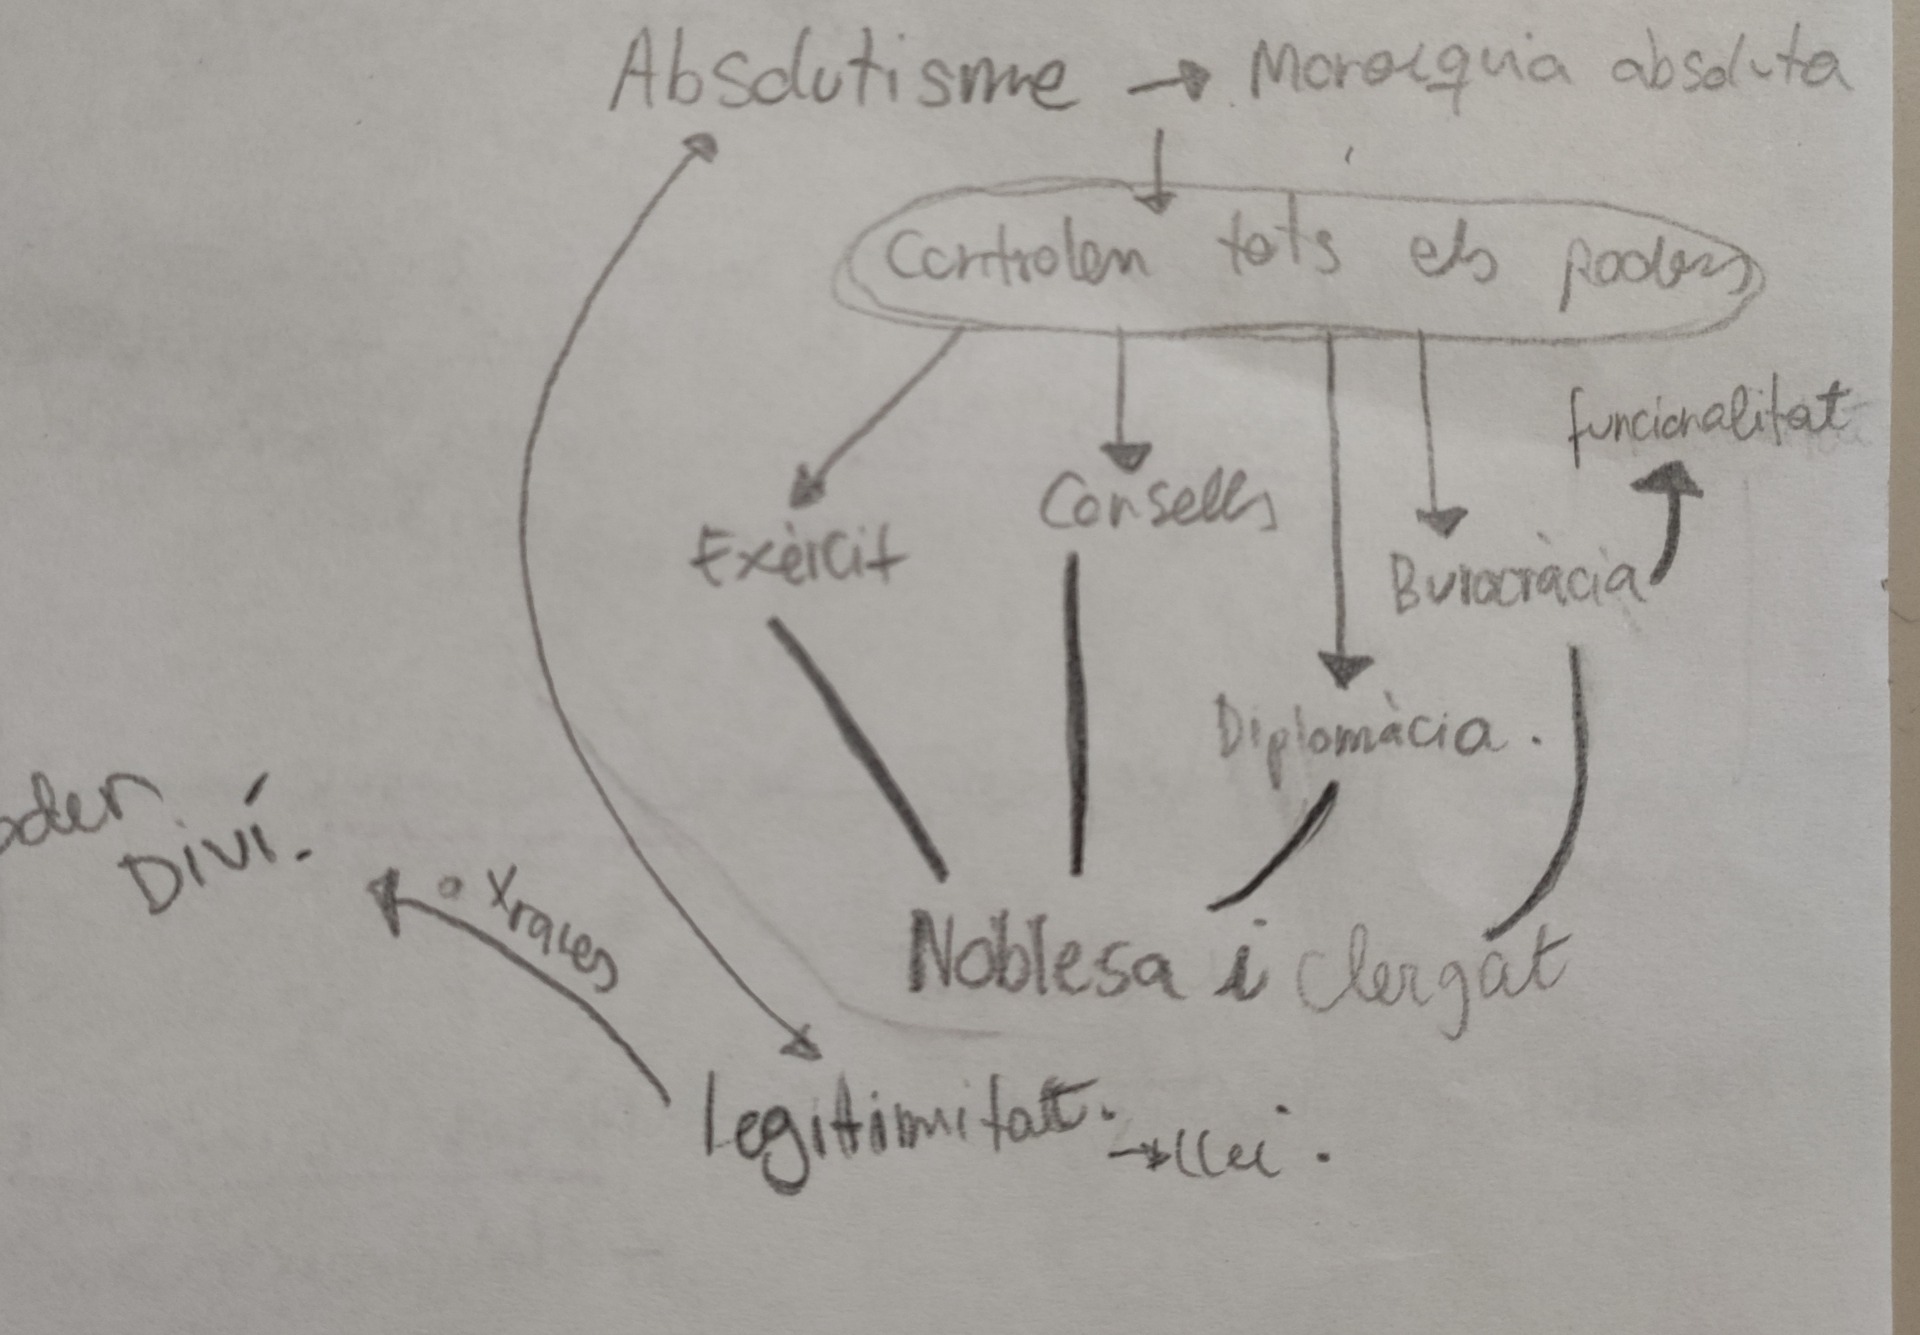 Absolutisme → Monarquia absoluta
Controlen tots els poders
funcionalitat
Exèrcit
Consells
Burocràcia
Diplomàcia.
oder
Diví.
Noblesa i clergat
Legitimitat.
→ llei.